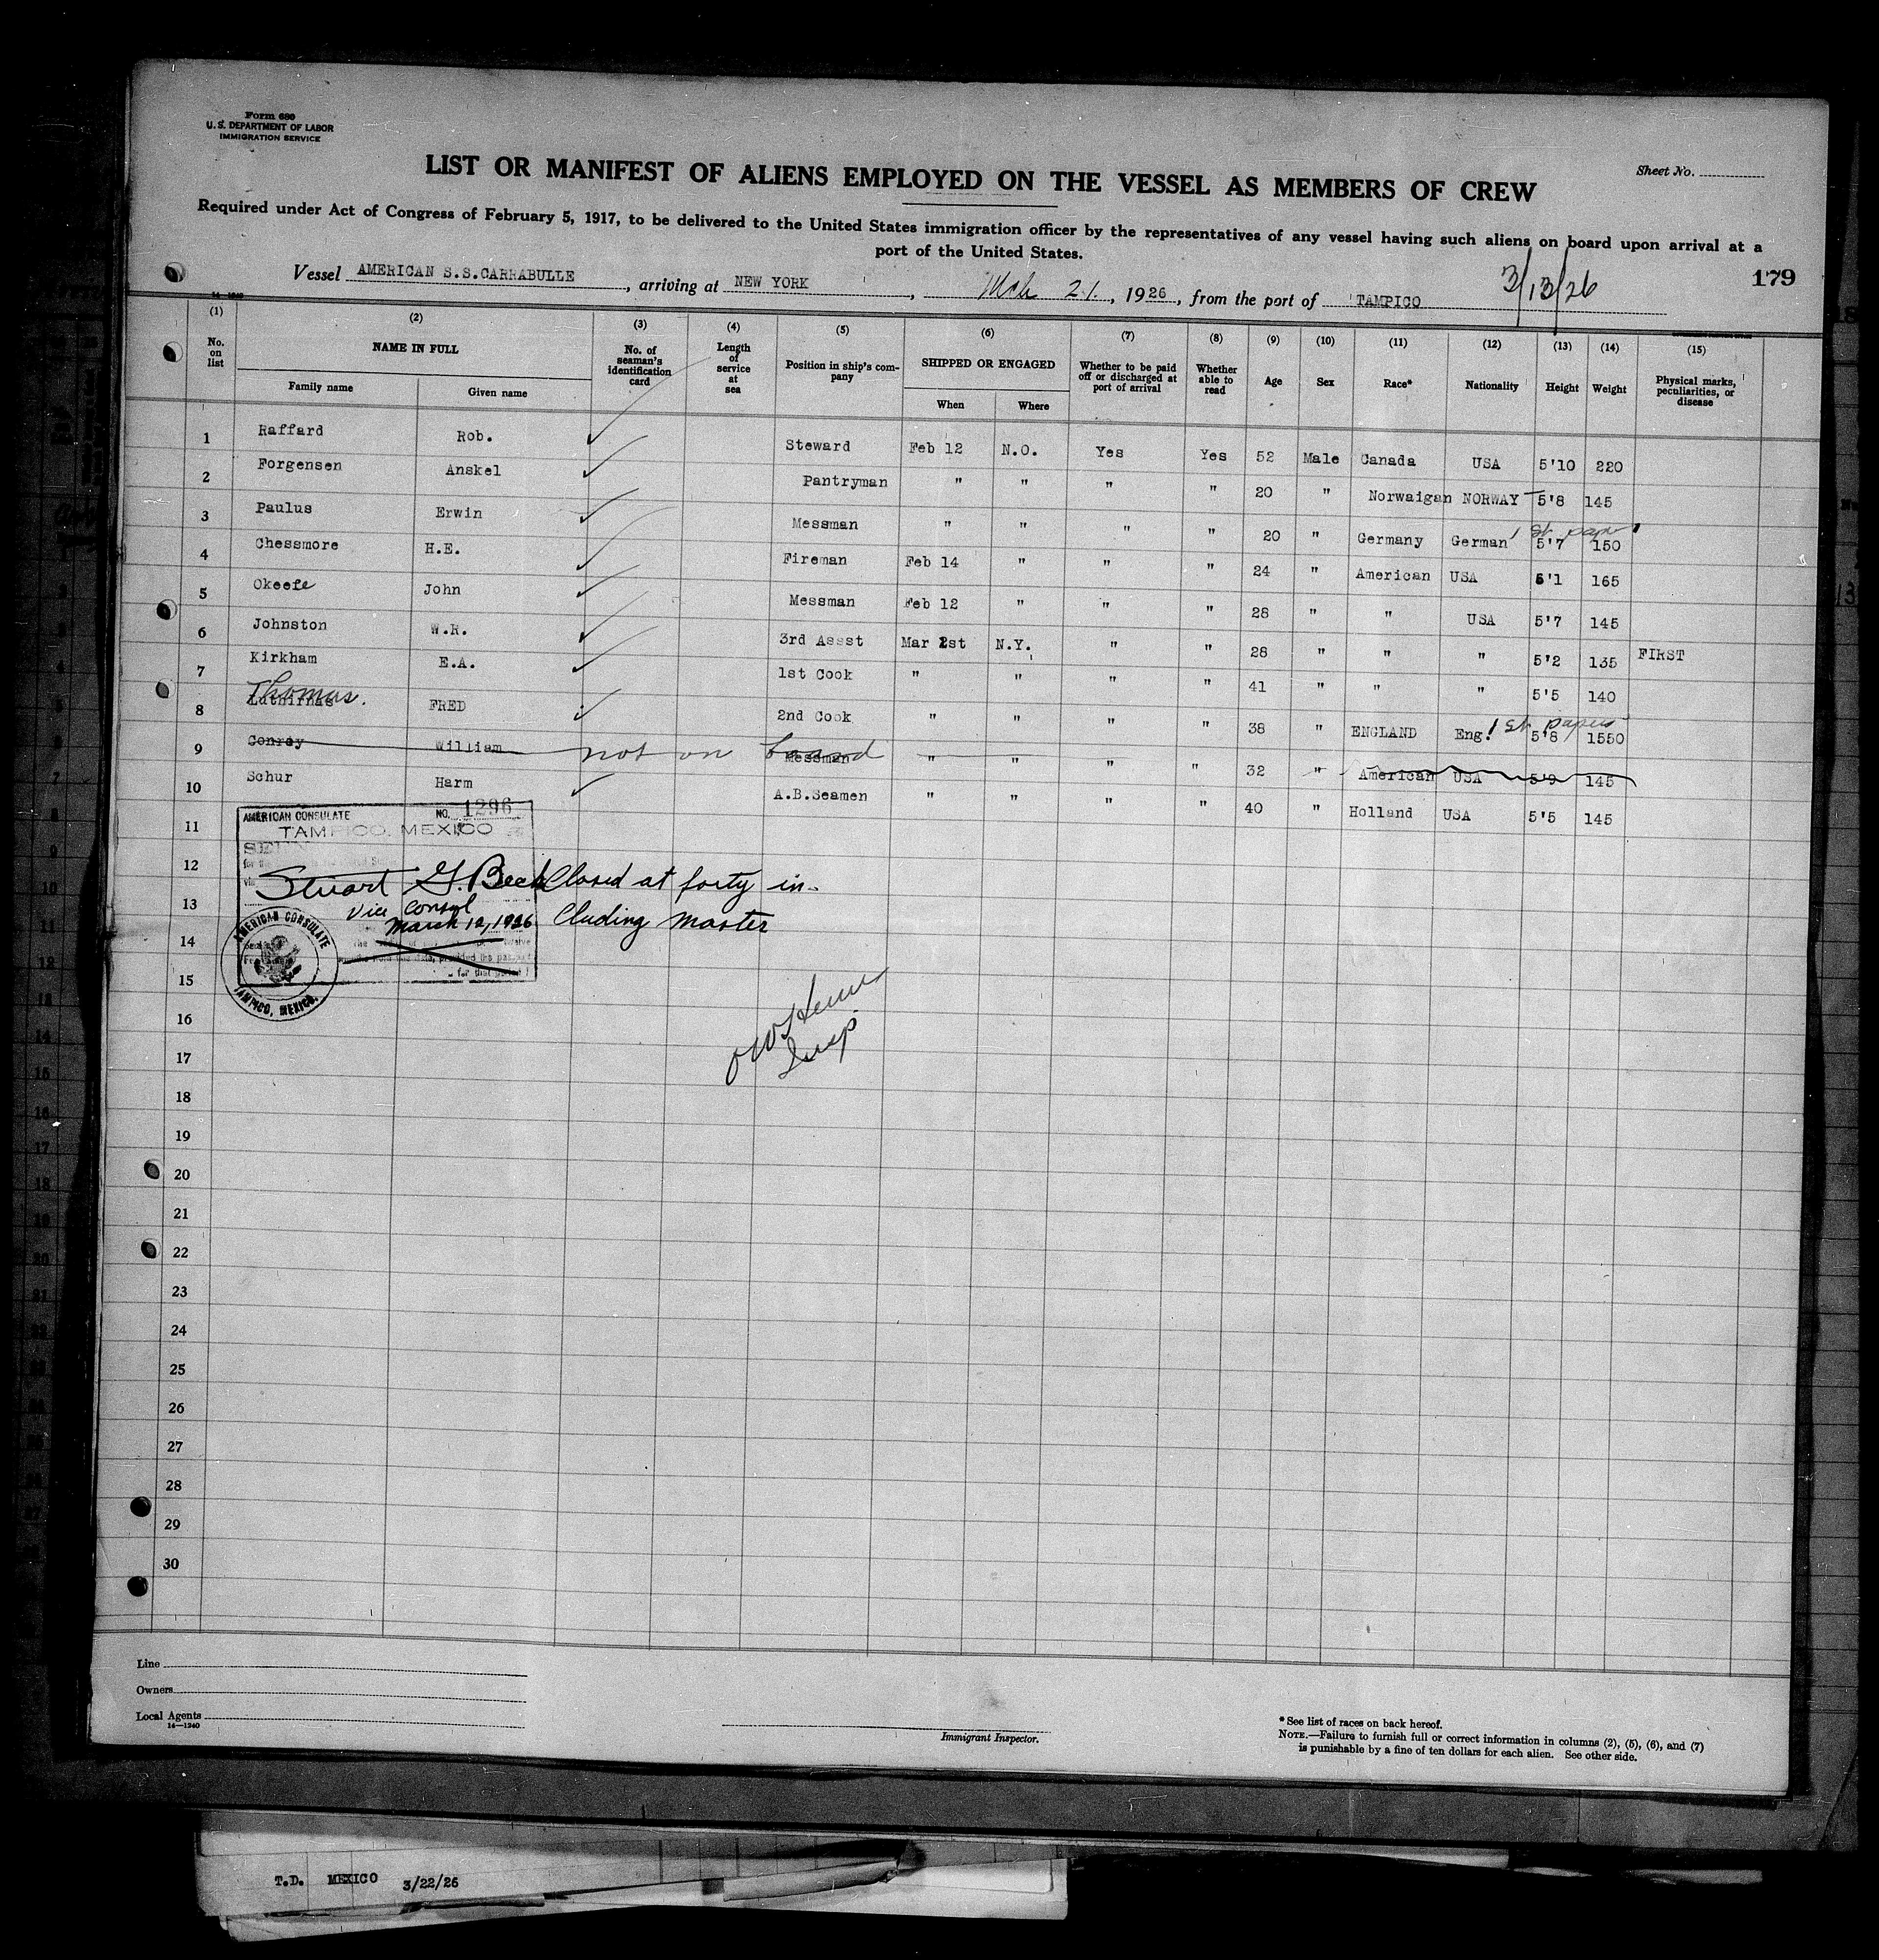 Form 680
U. S. DEPARTMENT OF LABOR
IMMIGRATION SERVICE
Sheet No.
LIST OR MANIFEST OF ALIENS EMPLOYED ON THE VESSEL AS MEMBERS OF CREW
Required under Act of Congress of February 5, 1917, to be delivered to the United States immigration officer by the representatives of any vessel having such aliens on board upon arrival at a
port of the United States.
179
Vessel AMERICAN S.S.CARRABULLE, arriving at NEW YORK, Mch 21, 1926, from the port of TAMPICO 3/13/26
(1) (2) (3) (4) (5) (6) (7) (8) (9) (10) (11) (12) (13) (14) (15)
No. on list NAME IN FULL Family name Given name No. of seaman's identification card Length of service at sea Position in ship's company SHIPPED OR ENGAGED When Where Whether to be paid off or discharged at port of arrival Whether able to read Age Sex Race* Nationality Height Weight Physical marks, peculiarities, or disease
1 Raffard Rob. Steward Feb 12 N.O. Yes Yes 52 Male Canada USA 5'10 220
2 Forgensen Anskel Pantryman " " " " 20 " Norwaigan NORWAY 5'8 145
3 Paulus Erwin Messman " " " " 20 " Germany German 1st paper 5'7 150
4 Chessmore H.E. Fireman Feb 14 " " " 24 " American USA 5'1 165
5 Okeefe John Messman Feb 12 " " " 28 " " USA 5'7 145
6 Johnston W.R. 3rd Assst Mar 2st N.Y. " " 28 " " " 5'2 135 FIRST
7 Kirkham E.A. 1st Cook " " " " 41 " " " 5'5 140
8 Thomas. FRED 2nd Cook " " " " 38 " ENGLAND Eng. 1st papers 5'8 1550
9 Conrey William not on board Messman " " " " 32 " American USA 5'9 145
10 Schur Harm A.B.Seamen " " " " 40 " Holland USA 5'5 145
11
12
13
14
15
16
17
18
19
20
21
22
23
24
25
26
27
28
29
30
AMERICAN CONSULATE NO. 1296
TAMPICO, MEXICO
SEEN
Stuart G. Beck
Vice Consul
March 12, 1926
Closed at forty in-
cluding master
AMERICAN CONSULATE
TAMPICO, MEXICO.
Insp
Line
Owners
Local Agents
14—1240
Immigrant Inspector.
* See list of races on back hereof.
NOTE.—Failure to furnish full or correct information in columns (2), (5), (6), and (7)
is punishable by a fine of ten dollars for each alien. See other side.
T.D. MEXICO 3/22/26